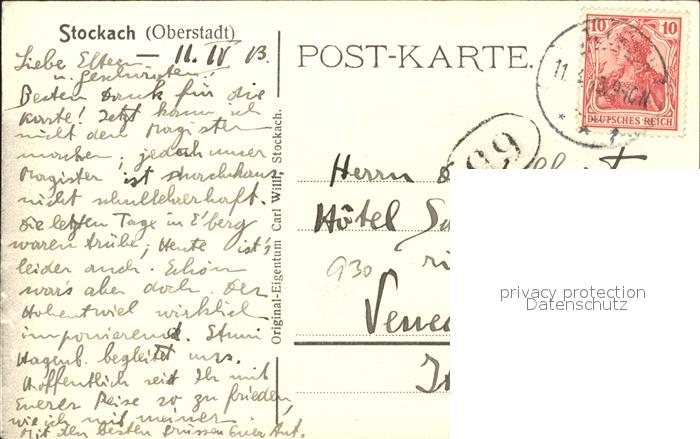 Stockach (Oberstadt)
11. IV 13.
Liebe Eltern
u. Geschwister!
Besten Dank für die
Karte! Jetzt kann ich
nicht den Magister
machen; jedoch unser
Magister ist durchaus
nicht schullehrerhaft.
Die letzten Tage in E'berg
waren trübe; Heute ist's
leider auch. Schön
war's aber doch. Der
Hohentwiel wirklich
imponierend.
Hagenb. begleitet uns.
Hoffentlich seid Ihr mit
Eurer Reise so zufrieden,
wie ich mit meiner.
Mit den besten Grüssen Euer Ant.
Original-Eigentum Carl Willi, Stockach.
POST-KARTE.
10 10
DEUTSCHES REICH
11.
Herrn
Hôtel
930
Vene
privacy protection
Datenschutz